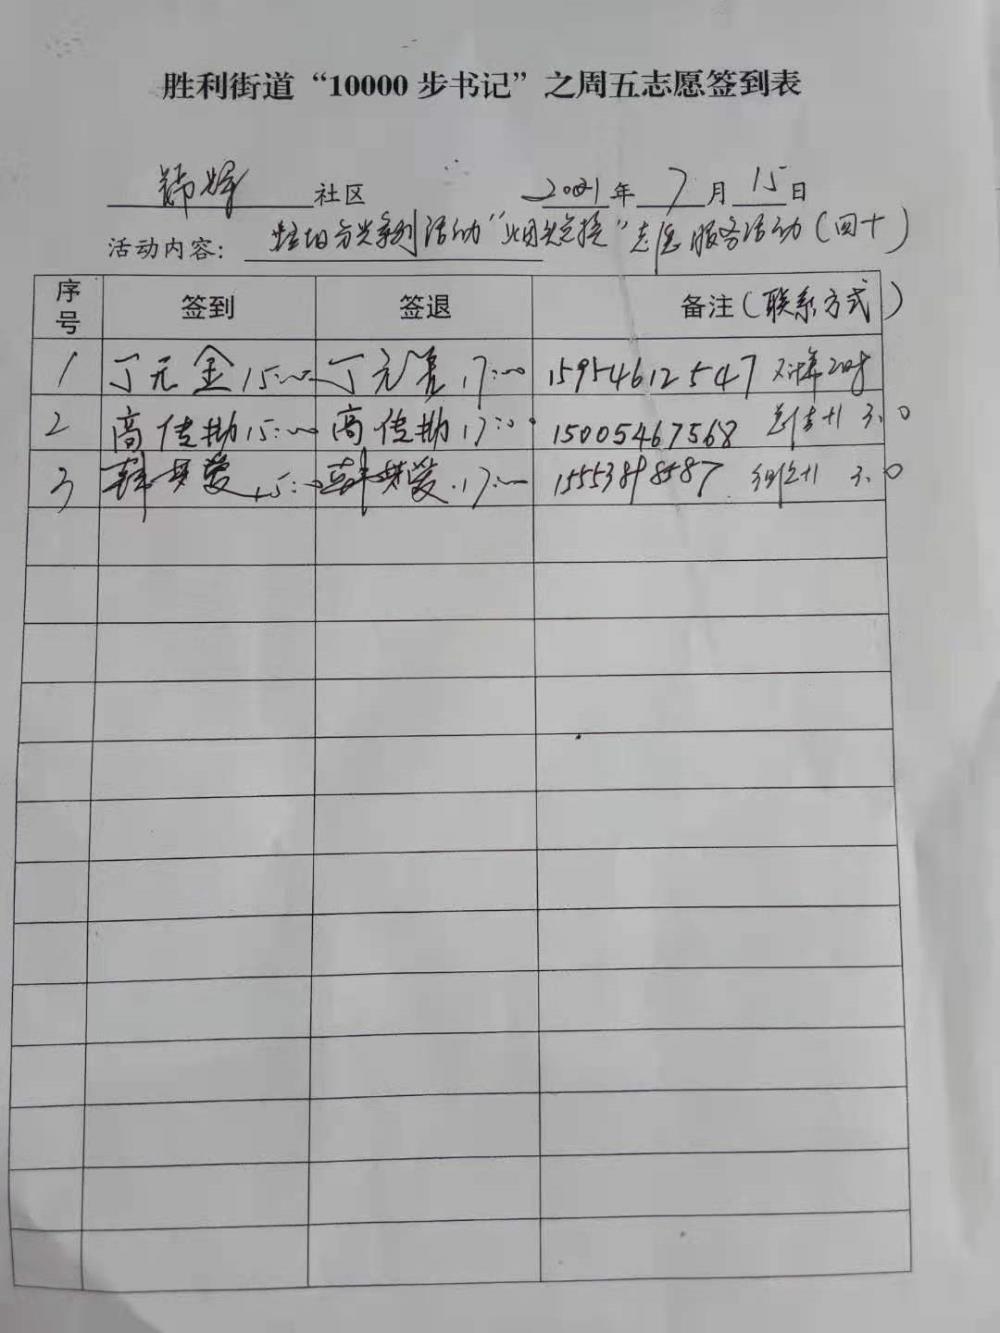 胜利街道“10000步书记”之周五志愿签到表
锦华社区 2021年7月15日
活动内容：系列活动“烟头兑换”志愿服务活动（四十）
序号 签到 签退 备注（联系方式）
1 丁元 15:00 丁元 17:00 15954612547
2 高传勤 15:00 高传勤 17:00 15005467568 3.0
3 15:00 17:00 15553898587 3.0